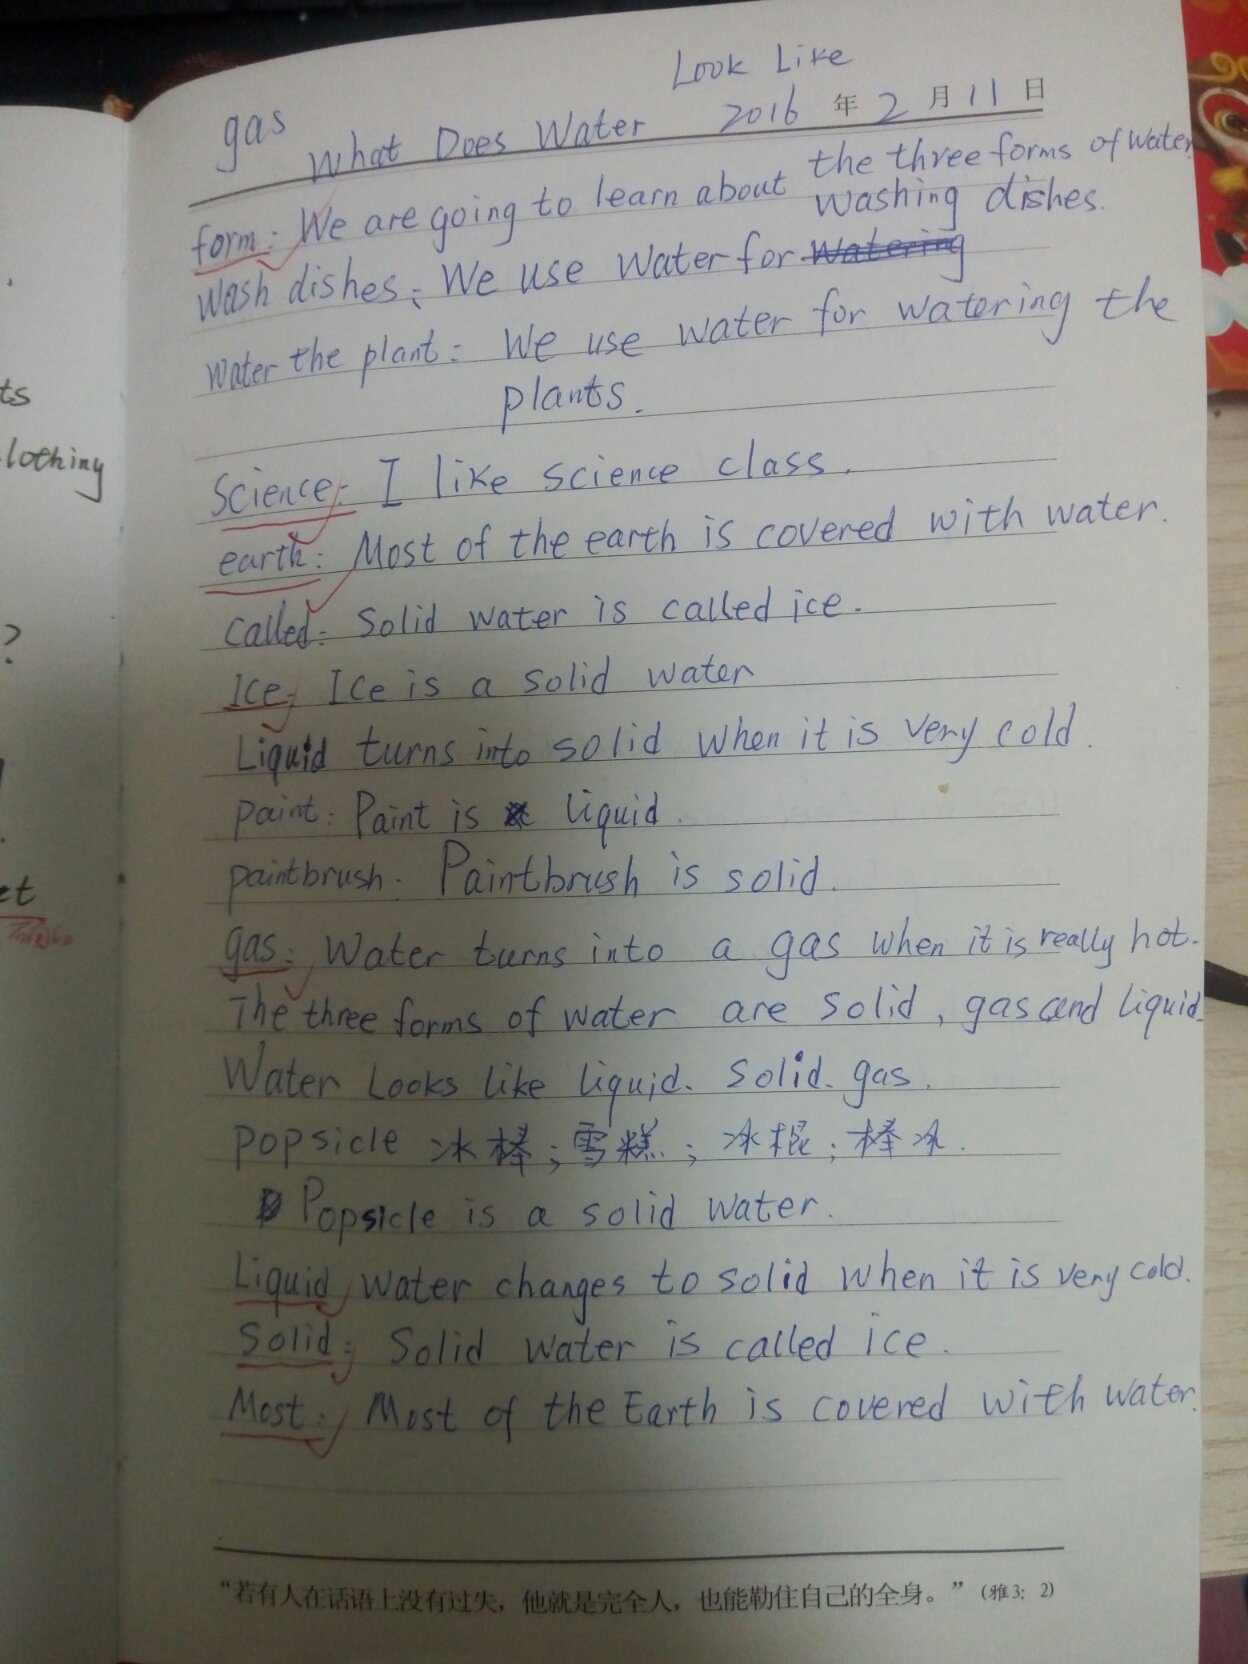 Look Like
gas What Does Water 2016 年 2 月 11 日
the three forms of water
form: We are going to learn about washing dishes.
Wash dishes: We use water for watering
Water the plant: We use water for watering the
plants.
Science: I like science class.
earth: Most of the earth is covered with water.
called: Solid water is called ice.
Ice: Ice is a solid water
Liquid turns into solid when it is very cold.
paint: Paint is liquid.
paintbrush. Paintbrush is solid.
gas: Water turns into a gas when it is really hot.
The three forms of water are solid, gas and liquid.
Water Looks like liquid. solid. gas.
popsicle 冰棒；雪糕；冰棍；棒冰.
Popsicle is a solid water.
Liquid, Water changes to solid when it is very cold.
Solid: Solid water is called ice.
Most: Most of the Earth is covered with water.
“若有人在话语上没有过失，他就是完全人，也能勒住自己的全身。”（雅3：2）
ts
lothing
?
et